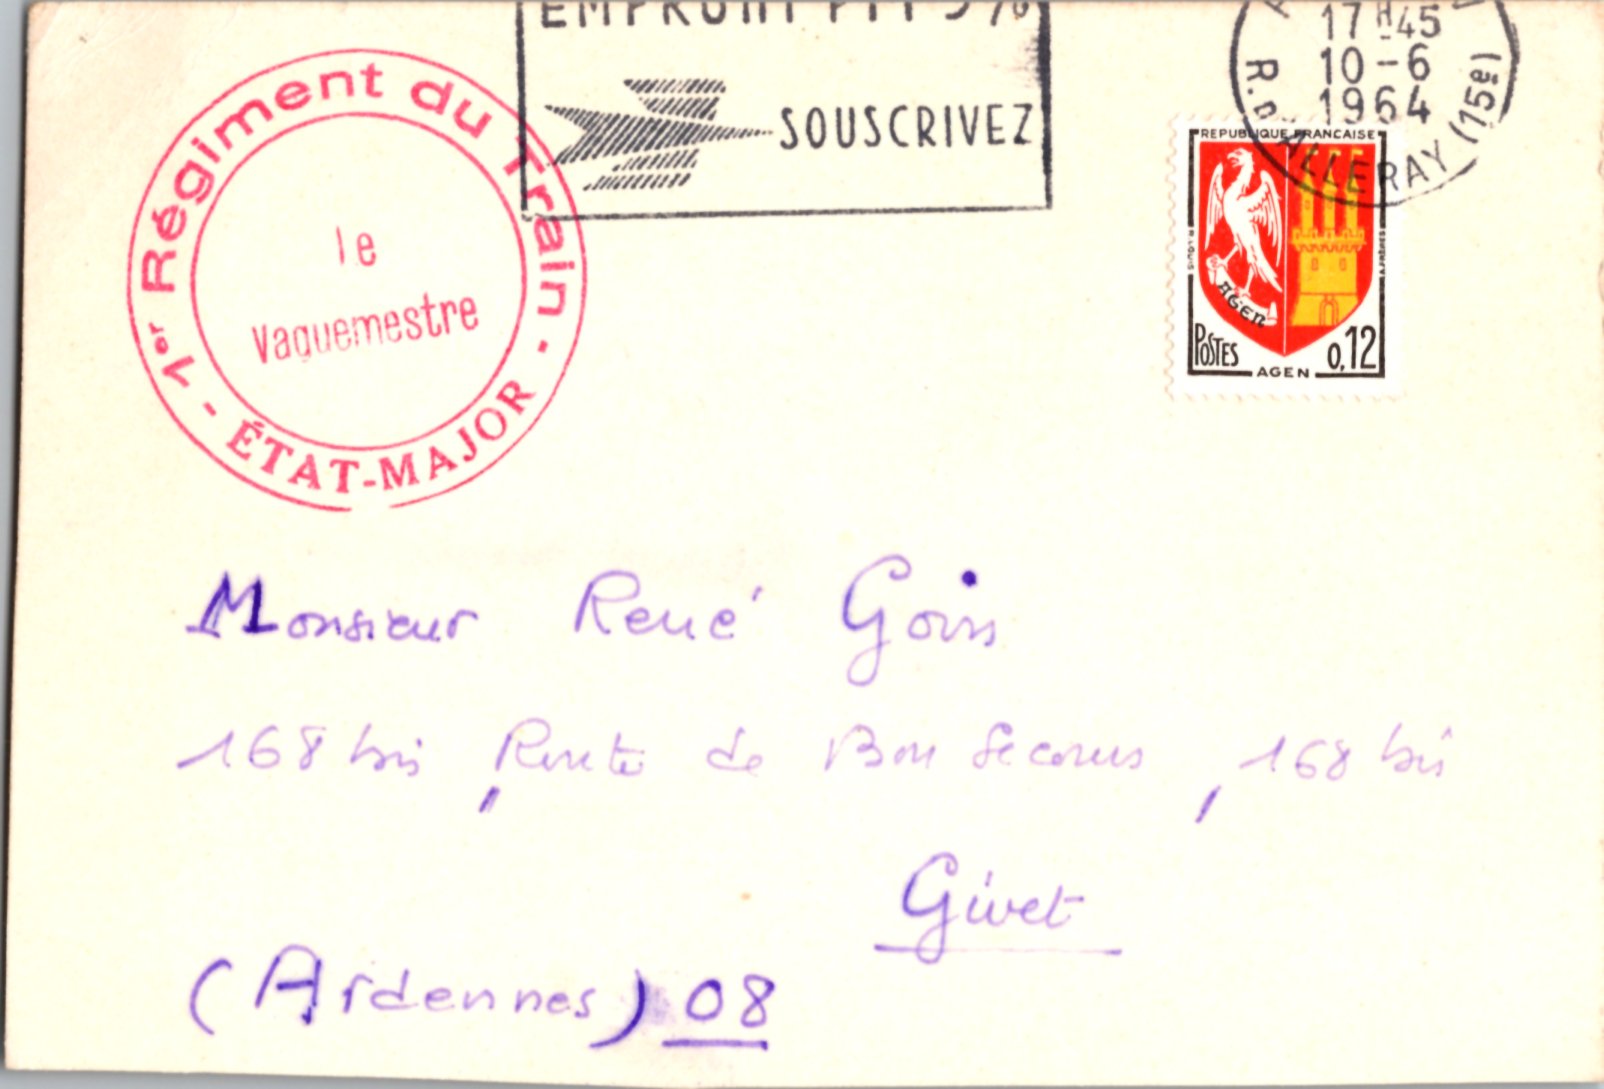 EMPRUNT PTT 5%
SOUSCRIVEZ
17H45
10-6
1964
R.D'ALLERAY (15e)
1er Régiment du Train - ÉTAT-MAJOR -
le
vaguemestre
REPUBLIQUE FRANCAISE
AGEN
POSTES
0,12
AGEN
Monsieur René Goin
168 bis, Route de Bon Secours, 168 bis
Givet
(Ardennes) 08